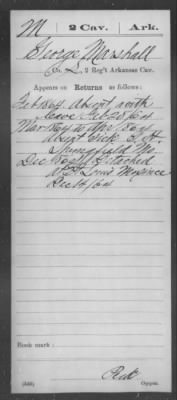 M 2 Cav. Ark.
George Marshall
Co. L, 2 Reg't Arkansas Cav.
Appears on Returns as follows:
Feb 1864 Absent with
leave Feb 28/64
Mar 1864 to Apr 1864
Absent Sick
Springfield Mo
Dec 1864 Detached
St Louis Mo since
Dec 14/64
Book mark:
(546) Copyist.